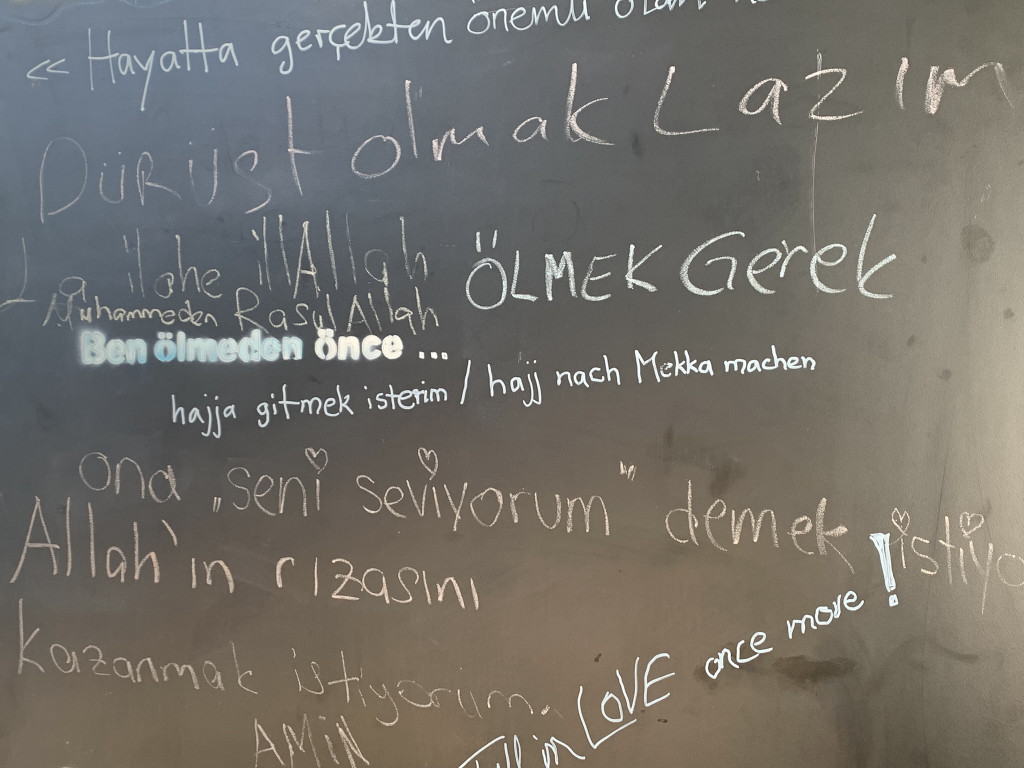 << Hayatta gerçekten önemli olan
DÜRÜST olmak Lazım
La ilahe illAllah
Muhammeden RasulAllah
ÖLMEK Gerek
Ben ölmeden önce ...
hajja gitmek isterim / hajj nach Mekka machen
ona „seni seviyorum" demek istiyo
Allah'ın rızasını
kazanmak istiyorum.
AMiN
Fall in LOVE once more!